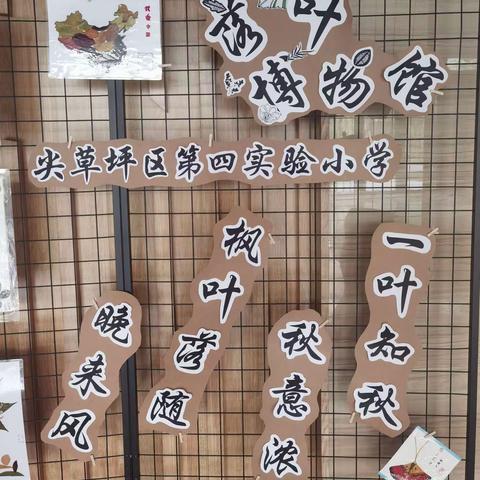 落叶
博物馆
尖草坪区第四实验小学
晓来风
枫叶落随
秋意浓
一叶知秋